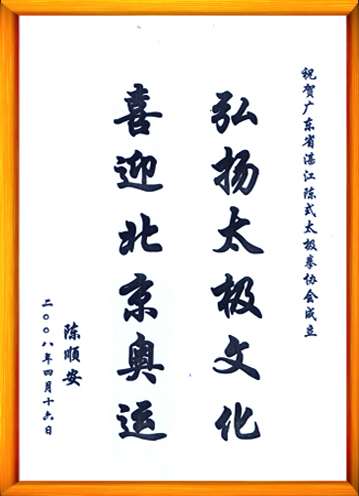 祝贺广东省湛江陈式太极拳协会成立
弘扬太极文化
喜迎北京奥运
陈顺安
二〇〇八年四月十六日